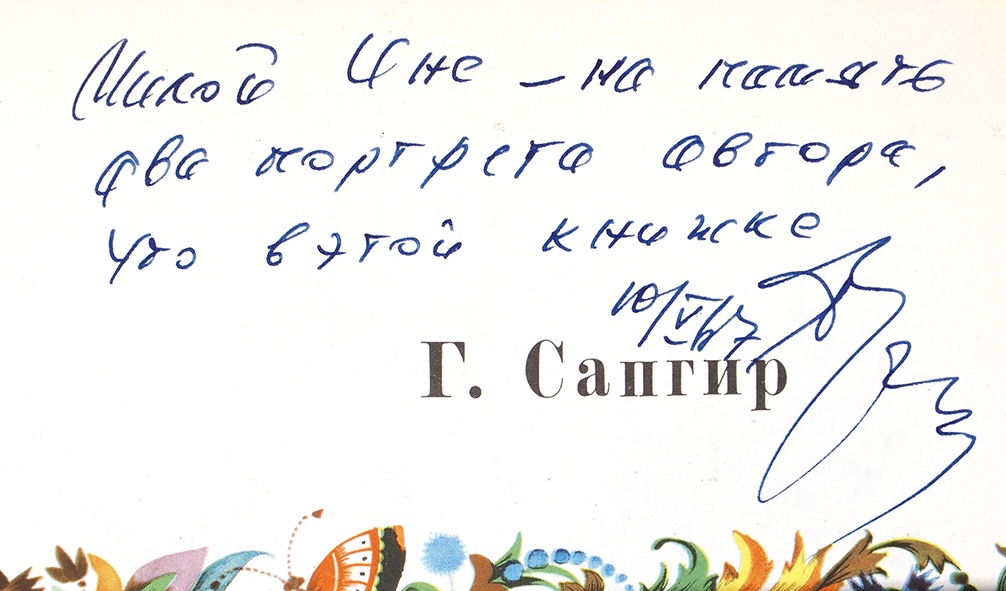 Милой Инне – на память
два портрета автора,
что в этой книжке
10/V 67
Г. Сапгир